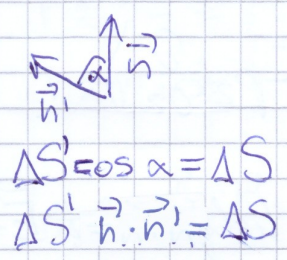 α n⃗
n⃗'
ΔS' cos α = ΔS
ΔS' n⃗ · n⃗' = ΔS